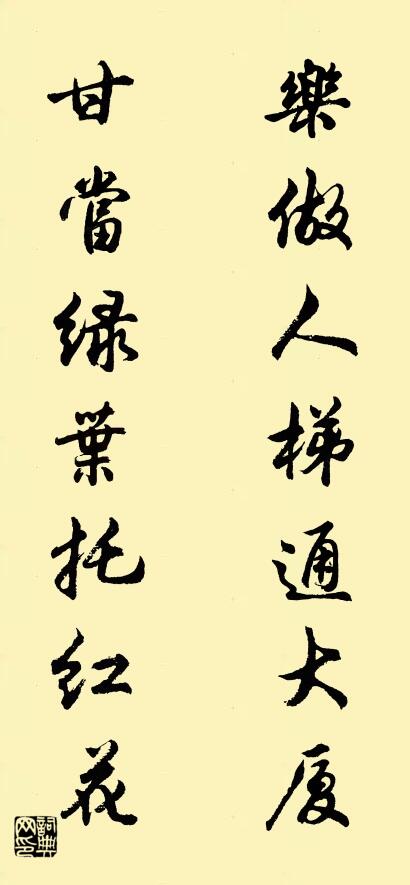 樂做人梯通大厦
甘當绿葉托红花
詞典网印